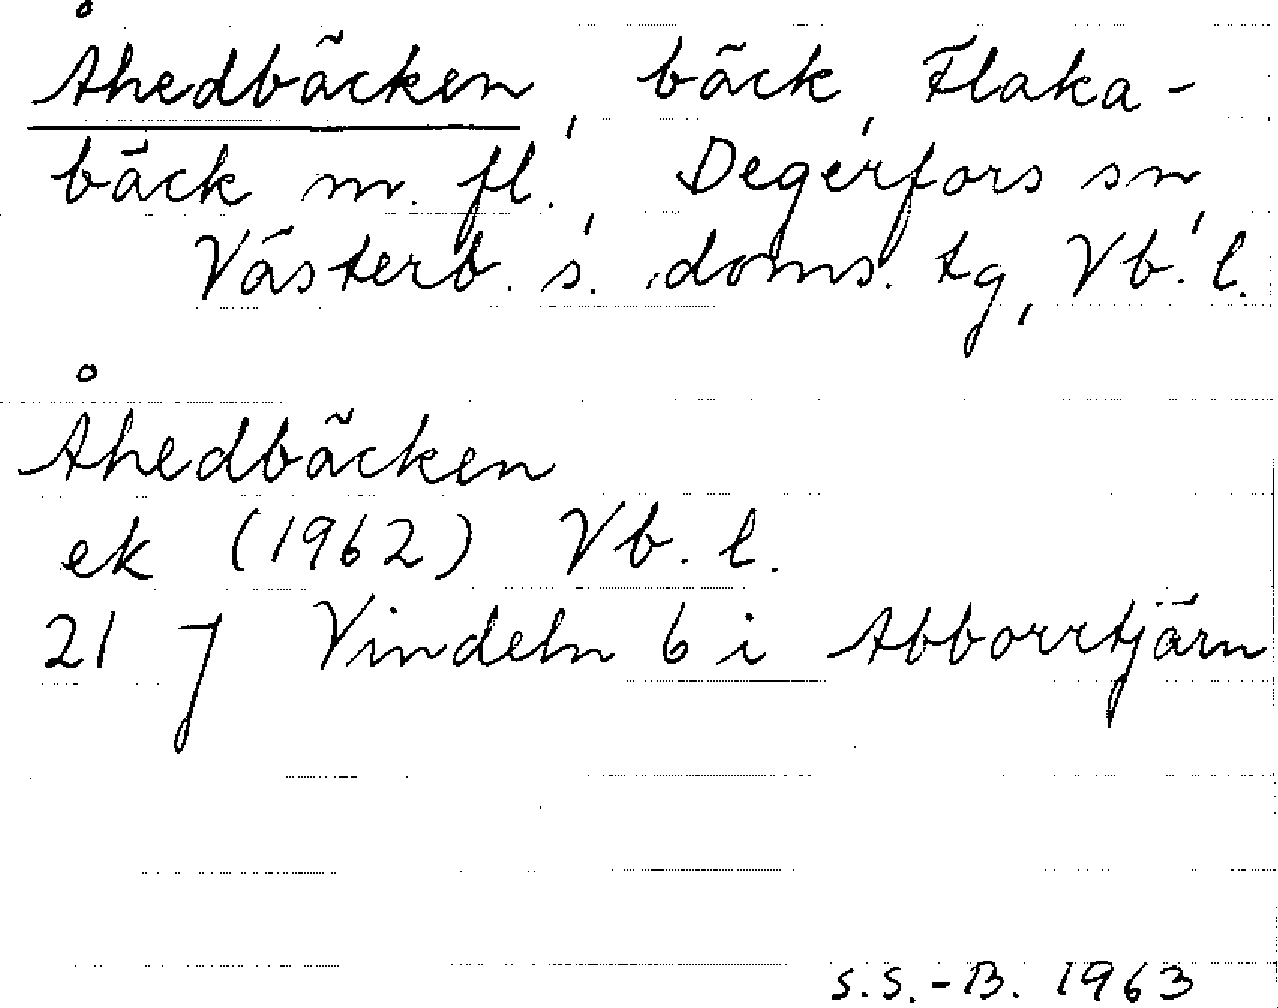 Åhedbäcken, bäck, Flaka-
bäck m. fl., Degerfors sn,
Västerb. s. doms. tg, Vb. l.
Åhedbäcken
ek (1962) Vb. l.
21 J Vindeln 6 i Abborrtjärn
S.S.-B. 1963